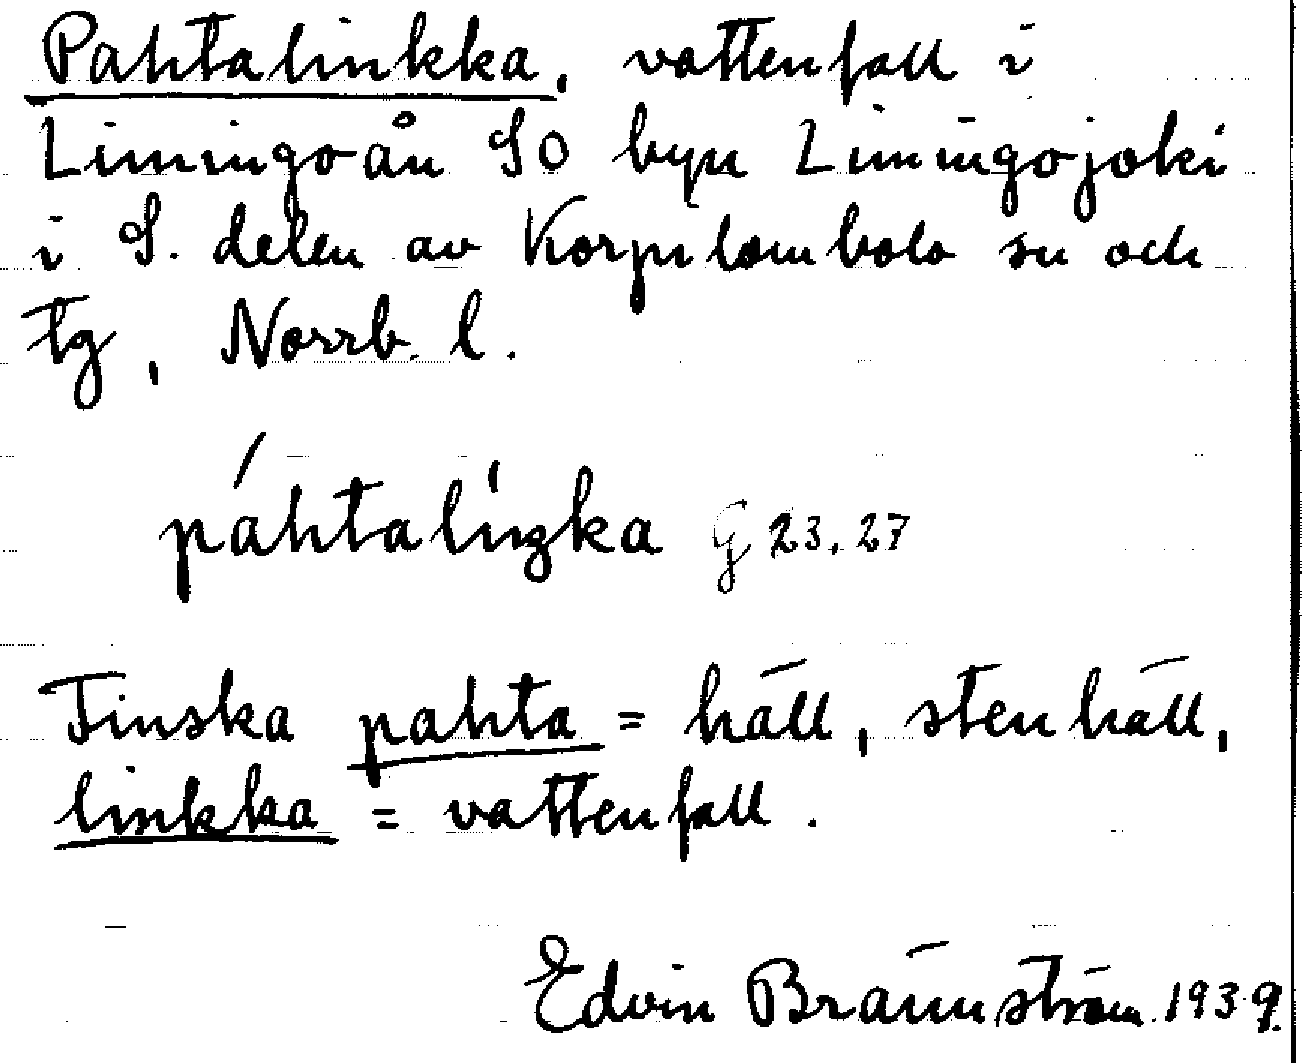 Pahtalinkka, vattenfall i
Limingoån SO byn Limingojoki
i S. delen av Korpilombolo sn och
tg, Norrb. l.
páhtalìŋka G 23.27
Finska pahta = häll, stenhäll,
linkka = vattenfall.
Edvin Brännström 1939.